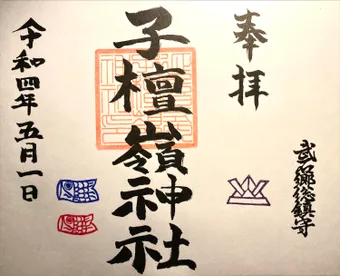 奉拝
武郷総鎮守
子檀嶺神社
令和四年五月一日